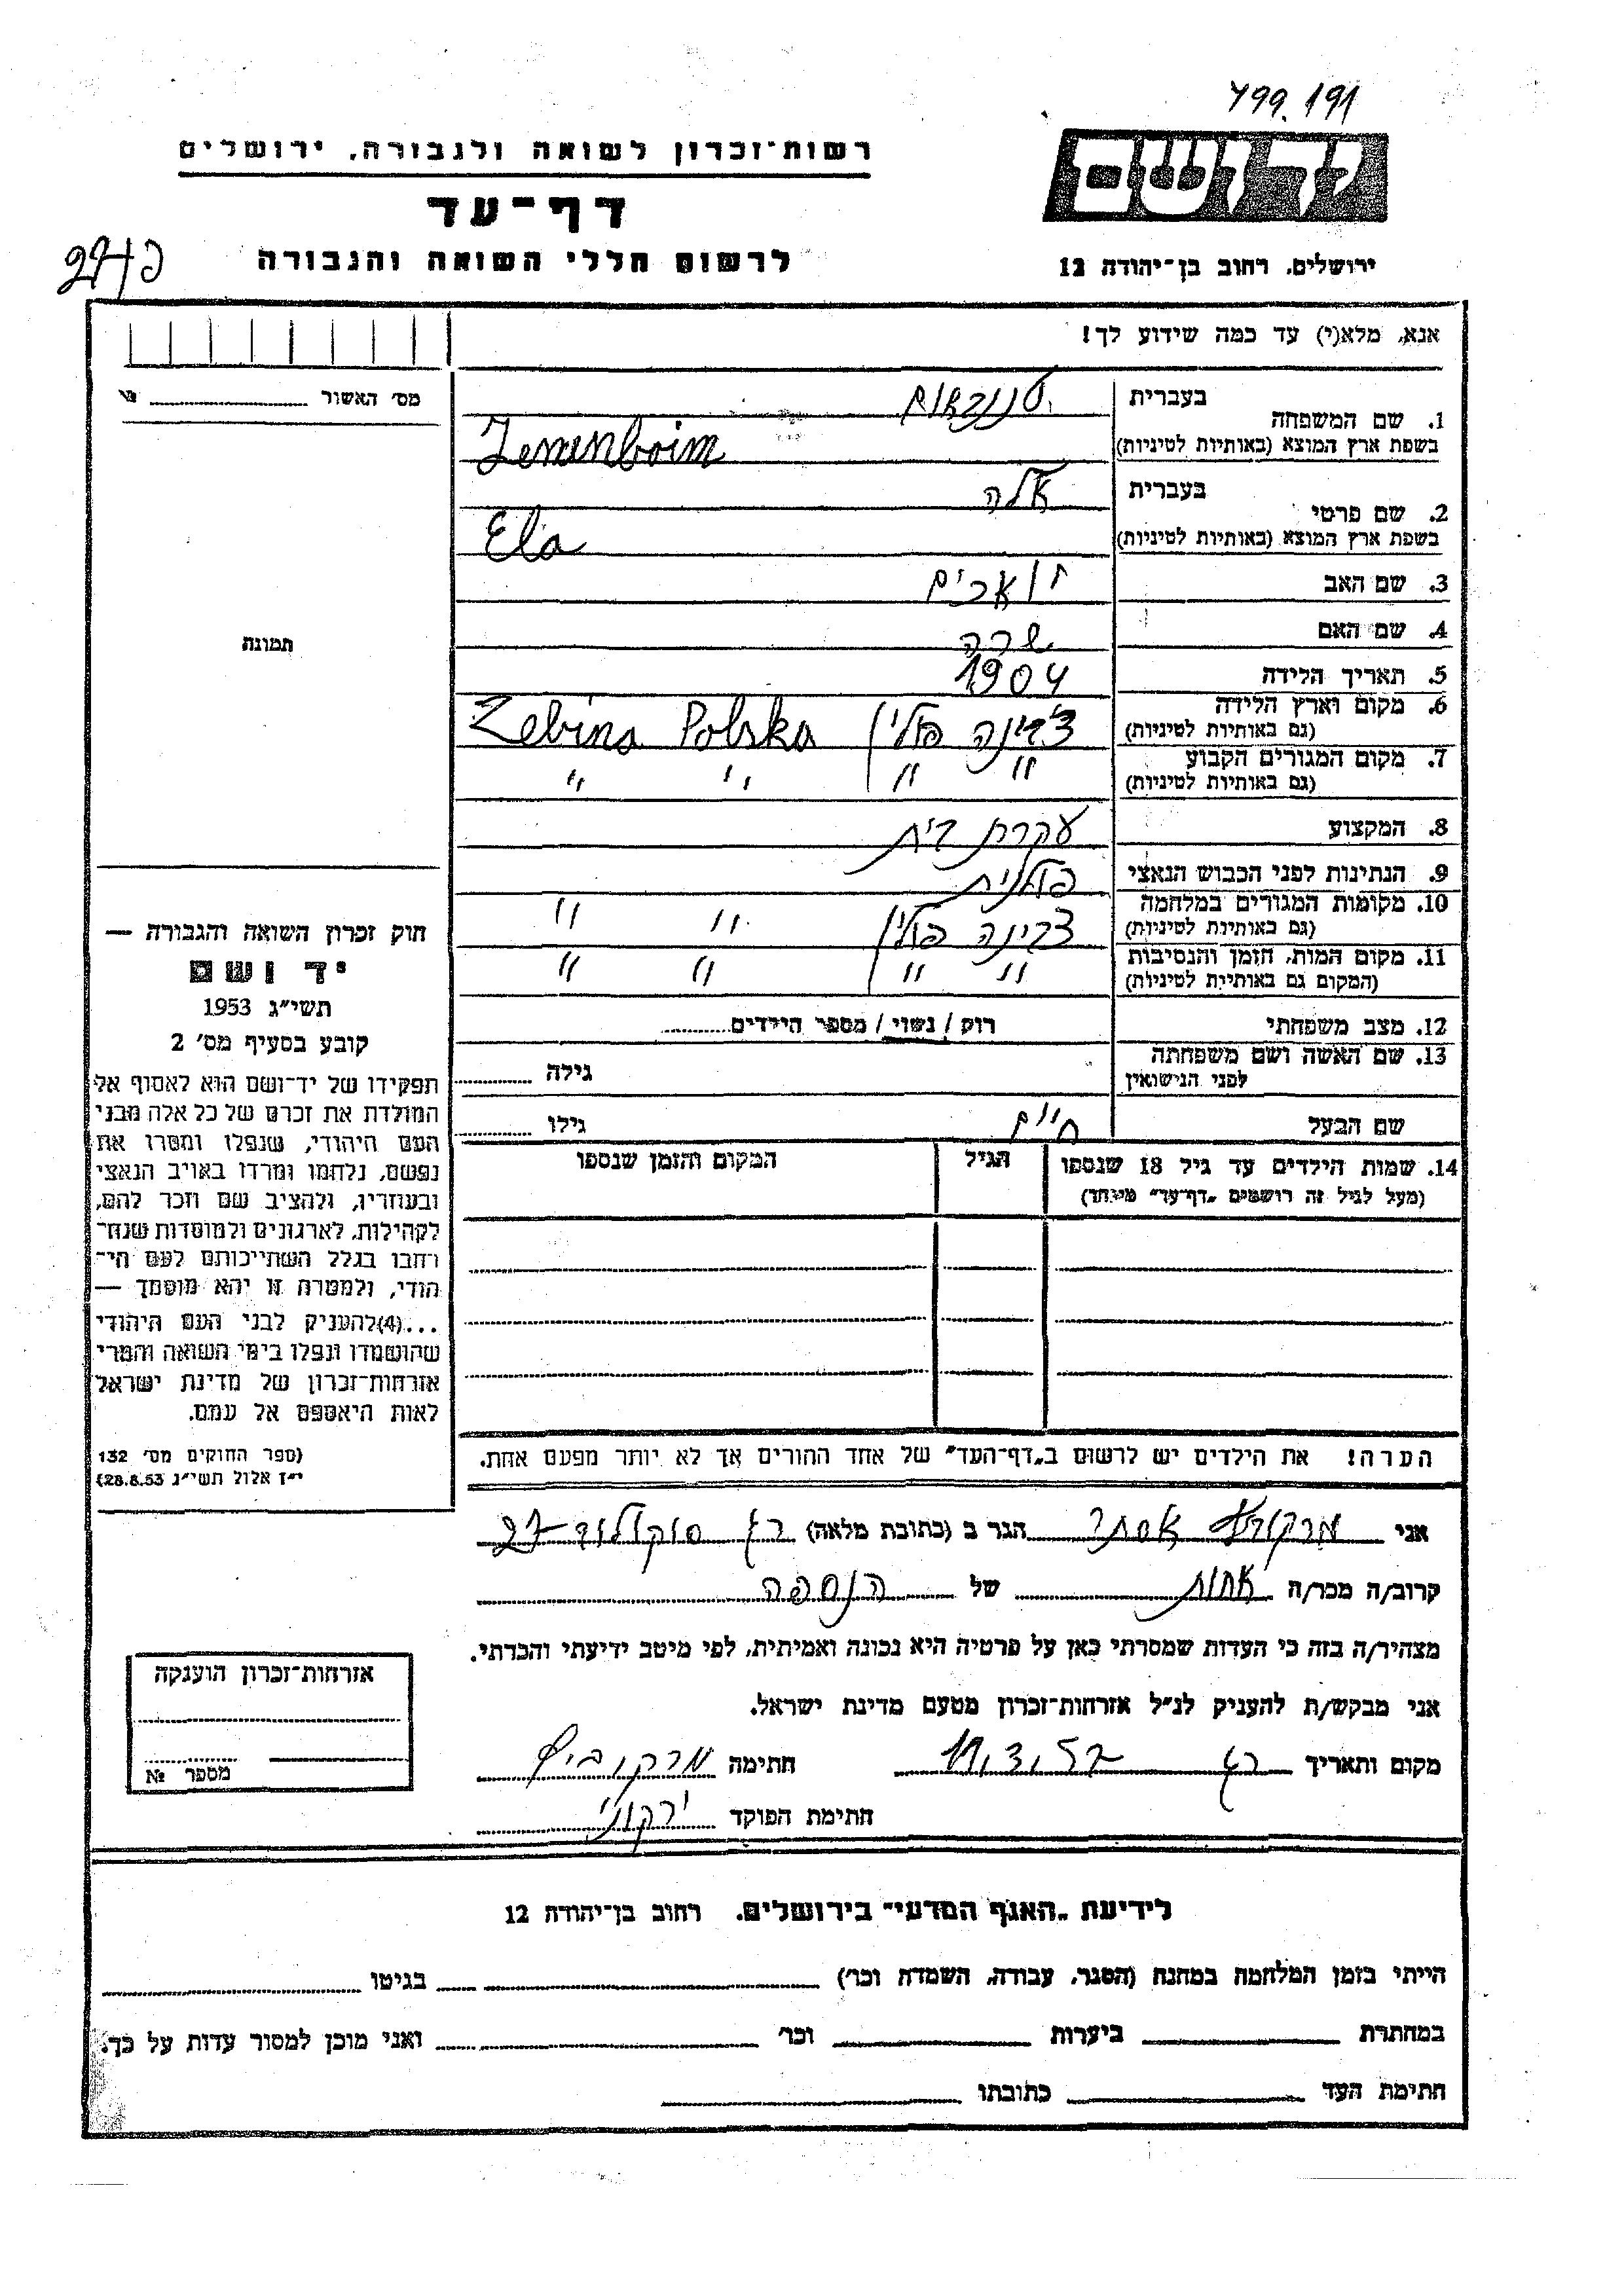 799.191
ידושם
רשות־זכרון לשואה ולגבורה, ירושלים
דף־עד
לרשום חללי השואה והגבורה
ירושלים, רחוב בן־יהודה 12
אנא, מלא(י) עד כמה שידוע לך!
מס׳ האשור №
1. שם המשפחה
בעברית
בשפת ארץ המוצא (באותיות לטיניות)
Zenenboim
2. שם פרטי
בעברית אלה
בשפת ארץ המוצא (באותיות לטיניות) Ela
3. שם האב
4. שם האם שרה
5. תאריך הלידה 1904
6. מקום וארץ הלידה
(גם באותיות לטיניות)
פולין Zebina Polska
7. מקום המגורים הקבוע
(גם באותיות לטיניות)
" " " "
8. המקצוע עקרת בית
9. הנתינות לפני הכבוש הנאצי פולנית
10. מקומות המגורים במלחמה
(גם באותיות לטיניות)
צבינה פולין " "
11. מקום המות, הזמן והנסיבות
(המקום גם באותיות לטיניות)
" " " "
12. מצב משפחתי רוק / נשוי / מספר הילדים
13. שם האשה ושם משפחתה
לפני הנישואין
גילה
שם הבעל חיים גילו
14. שמות הילדים עד גיל 18 שנספו
(מעל לגיל זה רושמים „דף־עד" מיוחד)
הגיל
המקום והזמן שנספו
הערה! את הילדים יש לרשום ב„דף־העד" של אחד ההורים אך לא יותר מפעם אחת.
תמונה
חוק זכרון השואה והגבורה —
יד ושם
תשי״ג 1953
קובע בסעיף מס׳ 2
תפקידו של יד־ושם הוא לאסוף אל
המולדת את זכרם של כל אלה מבני
העם היהודי, שנפלו ומסרו את
נפשם, נלחמו ומרדו באויב הנאצי
ובעוזריו, ולהציב שם וזכר להם,
לקהילות, לארגונים ולמוסדות שנח־
רחבו בגלל השתייכותם לעם הי־
הודי, ולמטרה זו יהא מוסמך —
...(4)להעניק לבני העם היהודי
שהושמדו ונפלו בימי השואה והמרי
אזרחות־זכרון של מדינת ישראל
לאות היאספם אל עמם.
(ספר החוקים מס׳ 132
י״ז אלול תשי״ג 28.8.53)
אני אסתר הגר ב (כתובת מלאה) רג סוקולוב 27
קרוב/ה מכר/ה אחות של הנספה
מצהיר/ה בזה כי העדות שמסרתי כאן על פרטיה היא נכונה ואמיתית, לפי מיטב ידיעתי והכרתי.
אני מבקש/ת להעניק לנ״ל אזרחות־זכרון מטעם מדינת ישראל.
מקום ותאריך רג חתימה מרקוביץ
חתימת הפוקד ירקוני
אזרחות־זכרון הוענקה
מספר №
לידיעת „האגף המדעי" בירושלים, רחוב בן־יהודה 12
הייתי בזמן המלחמה במחנה (הסגר, עבודה, השמדה וכר׳) בגיטו
במחתרת ביערות וכר׳ ואני מוכן למסור עדות על כך.
חתימת העד כתובתו